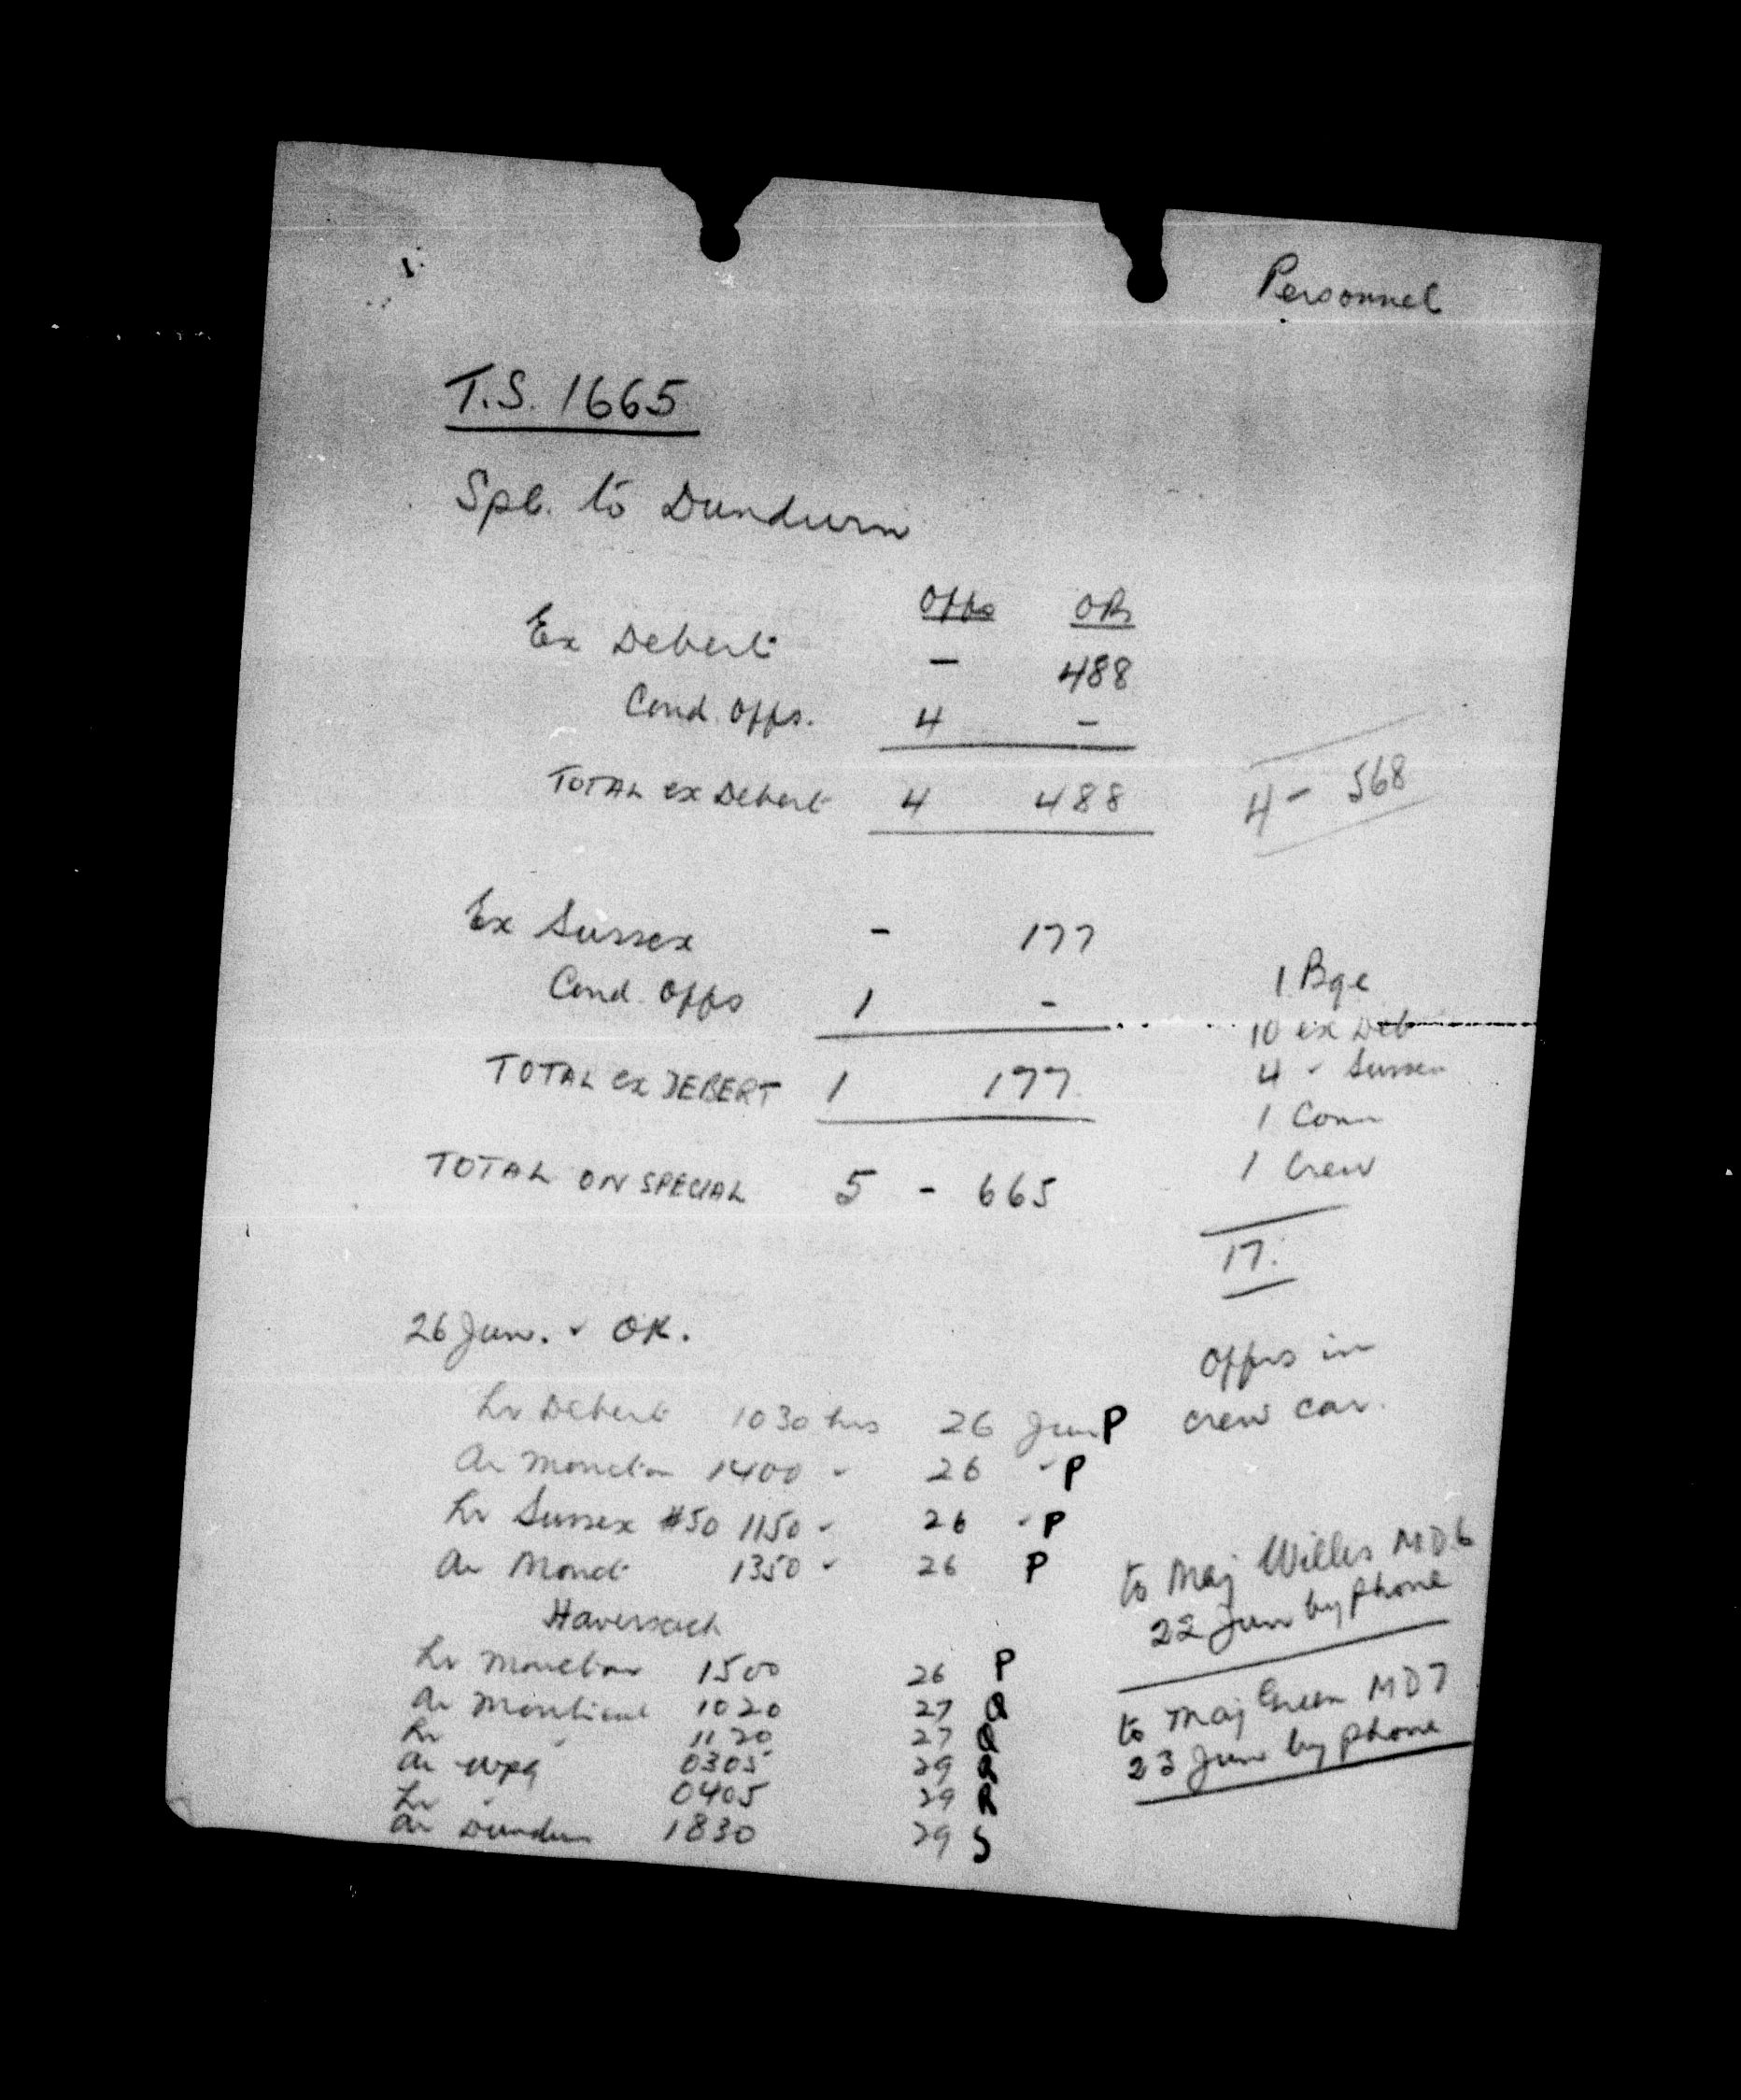 Personnel
T.S. 1665
Spl. to Dundurn
Offs ORs
Ex Debert - 488
Cond. Offs. 4 -
TOTAL ex Debert 4 488
4 - 568
Ex Sussex - 177
Cond. Offs 1 -
TOTAL ex DEBERT 1 177
TOTAL ON SPECIAL 5 - 665
1 Bge
10 ex Deb
4 " Sussex
1 Comm
1 Crew
17.
26 Jun. - OK.
Offrs in
crew car.
Lv Debert 1030 hrs 26 Jun P
Ar Moncton 1400 " 26 " P
Lv Sussex #50 1150 " 26 " P
Ar Monct 1350 " 26 P
Haversack
Lv Moncton 1500 26 P
Ar Montreal 1020 27 Q
Lv " 1120 27 Q
Ar Wpg 0305 29 R
Lv " 0405 29 R
Ar Dundurn 1830 29 S
to Maj Willis MD6
22 Jun by phone
to Maj Green MD7
23 Jun by phone